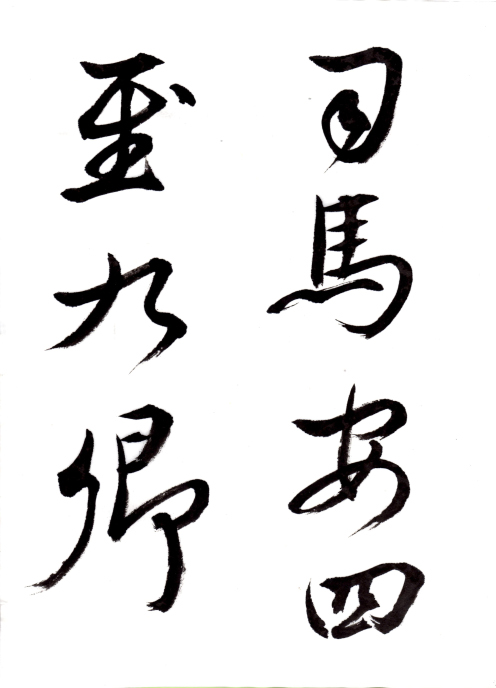 司馬安四
至九卿